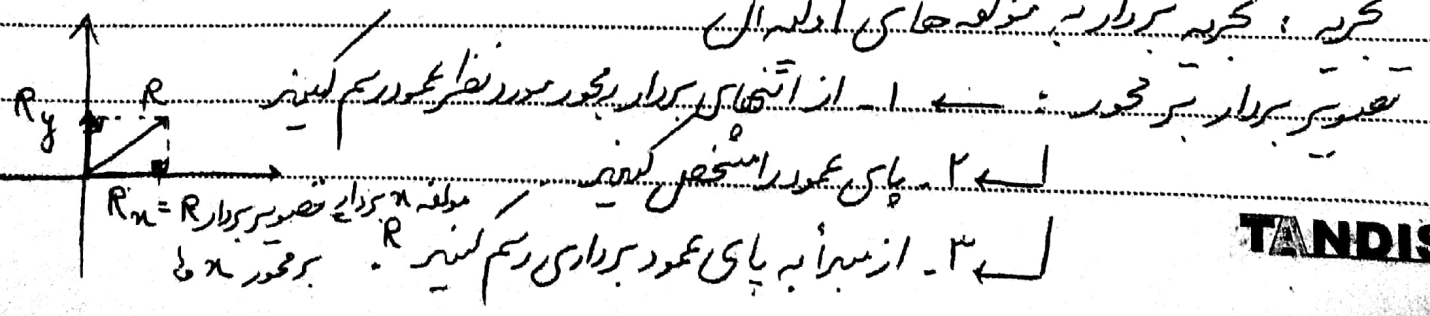 تجزیه : تجزیه بردار به مولفه های اولیه ال
تصویر بردار بر محور : ← ۱- از انتهای بردار بر محور مورد نظر عمود رسم کنید
۲- پای عمود را مشخص کنید
۳- از مبدأ به پای عمود برداری رسم کنید
R
Ry
Rx = مولفه x بردار R تصویر بردار R
بر محور x ها
TANDIS